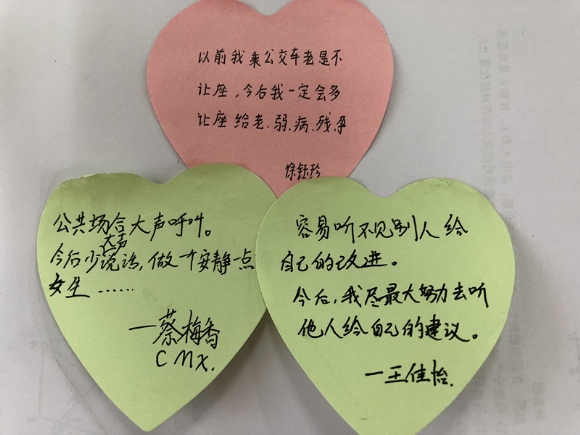 以前我乘公交车老是不
让座，今后我一定会多
让座给老、弱、病、残、孕
徐钰玲
公共场合大声呼叫。
今后少大声说话，做一个安静一点
女生……
—蔡梅香
CMX.
容易听不见别人给
自己的改进。
今后，我尽最大努力去听
他人给自己的建议。
—王佳怡.